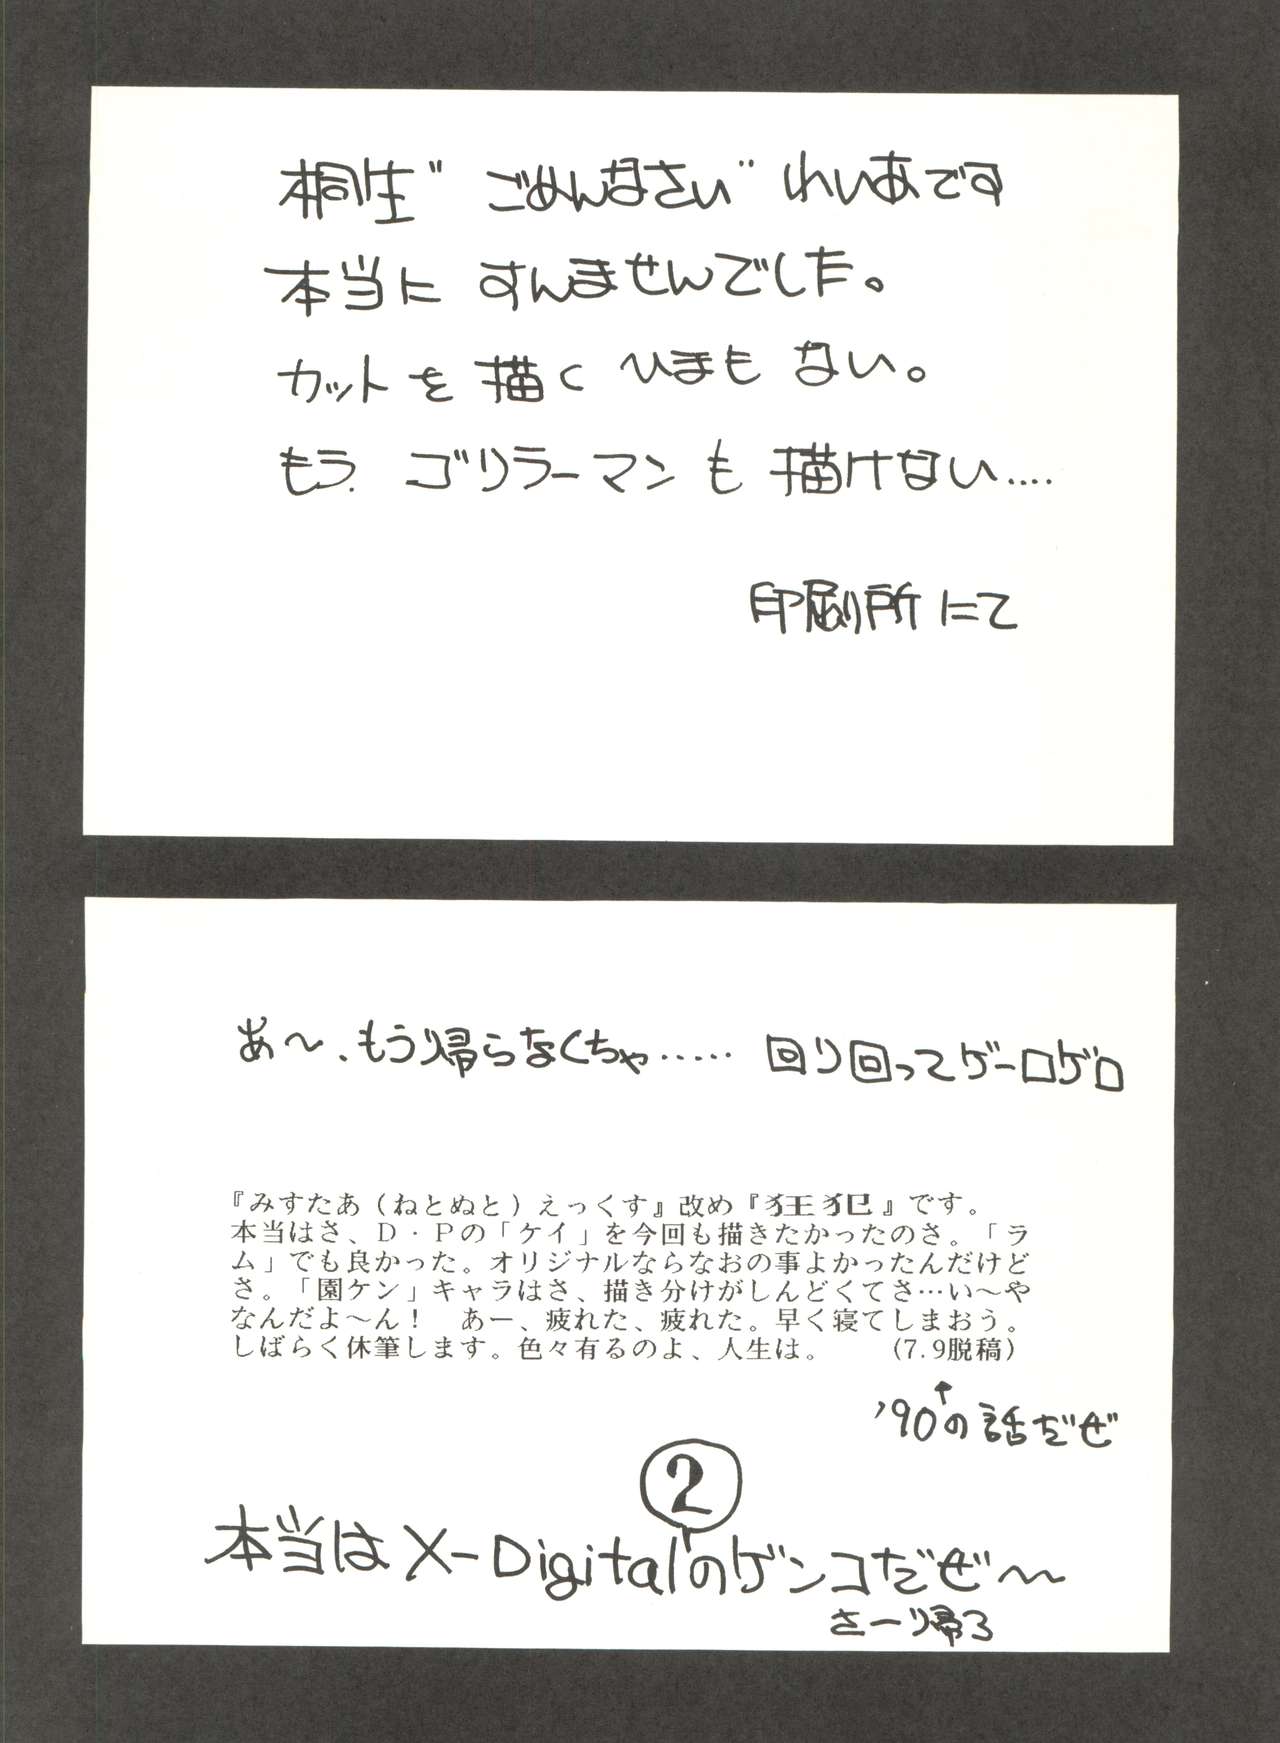 桐生"ごめんなさい"れいあです
本当に すんませんでした。
カットを描くひまもない。
もう. ゴリラーマンも描けない....
印刷所にて
あ〜、もう帰らなくちゃ…… 回り回ってゲーロゲロ
『みすたあ（ねとぬと）えっくす』改め『狂犯』です。
本当はさ、D・Pの「ケイ」を今回も描きたかったのさ。「ラ
ム」でも良かった。オリジナルならなおの事よかったんだけど
さ。「園ケン」キャラはさ、描き分けがしんどくてさ…い〜や
なんだよ〜ん！　あー、疲れた、疲れた。早く寝てしまおう。
しばらく休筆します。色々有るのよ、人生は。　　(7.9脱稿)
↑
'90の話だぜ
②
本当はX-Digitalのゲンコだぜ〜
さーり帰ろ